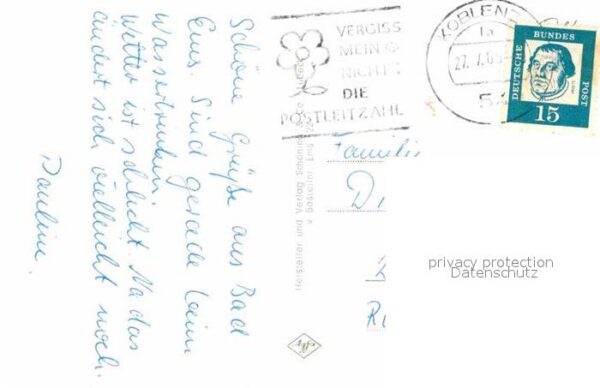 Schöne Grüße aus Bad
Ems. Sind gerade beim
Wassertrinken
Wetter ist schlecht. Na das
ändert sich vielleicht noch.
Pauline.
VERGISS
MEIN
NICHT
DIE
POSTLEITZAHL
KOBLENZ
1a
27. 7.
DEUTSCHE BUNDES POST
15
Hersteller und Verlag Schöning
Bestellnr Ems
Familie
privacy protection
Datenschutz